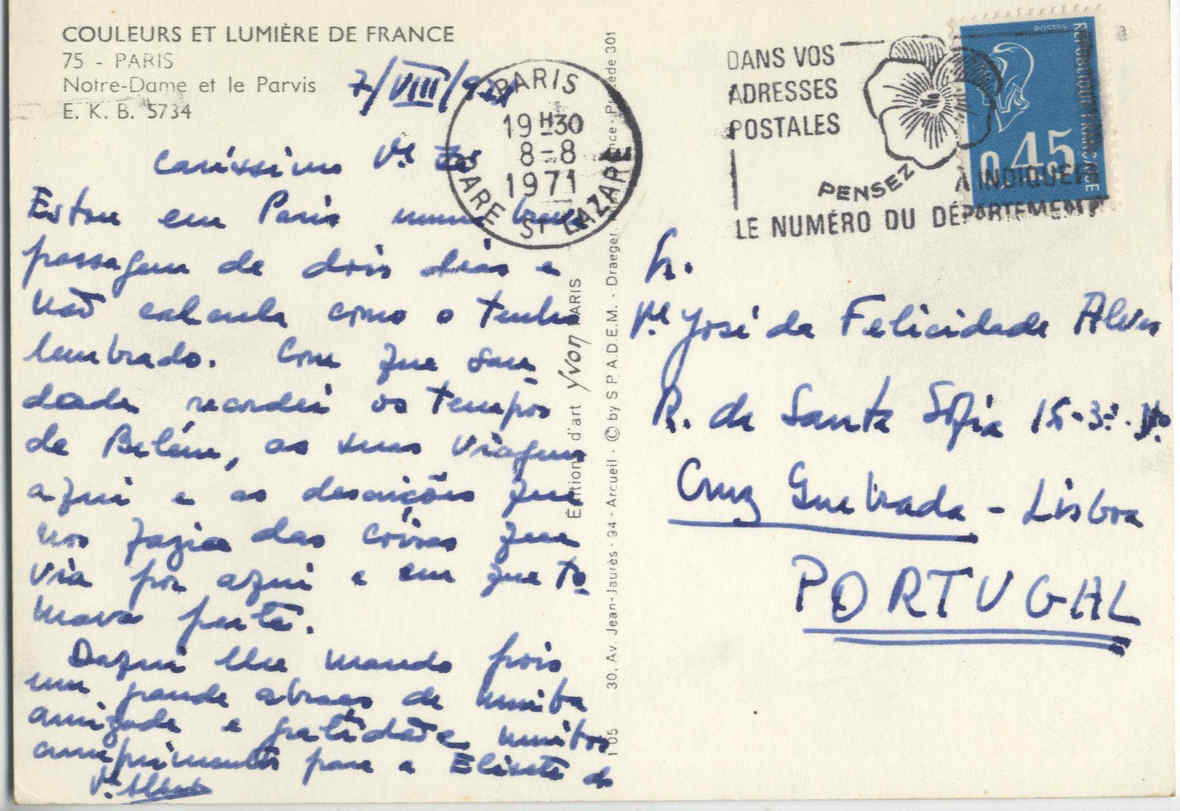 COULEURS ET LUMIÈRE DE FRANCE
75 - PARIS
Notre-Dame et le Parvis
E. K. B. 5734
7/VIII/971
Caríssimo Pe. José
Estou em Paris numa breve
passagem de dois dias e
não calcula como o tenho
lembrado. Com que sau
dade recordei os tempos
de Belém, as suas viagens
aqui e as descrições que
nos fazia das coisas que
via por aqui e em que to
mava parte.
Daqui lhe mando pois
um grande abraço de muita
amizade e gratidão e muitos
cumprimentos para a Elisete do
PARIS
19H30
8-8
1971
GARE ST LAZARE
DANS VOS
ADRESSES
POSTALES
PENSEZ
À INDIQUER
LE NUMÉRO DU DÉPARTEMENT
POSTES
REPUBLIQUE FRANÇAISE
0,45
Éditions d'art Yvon PARIS
30, Av. Jean-Jaurès - 94 - Arcueil - © by S.P.A.D.E.M. - Draeger, France - Procédé 301
105
Sr.
Pe. José da Felicidade Alves
R. de Santa Sofia 15-3º-
Cruz Quebrada - Lisboa
PORTUGAL